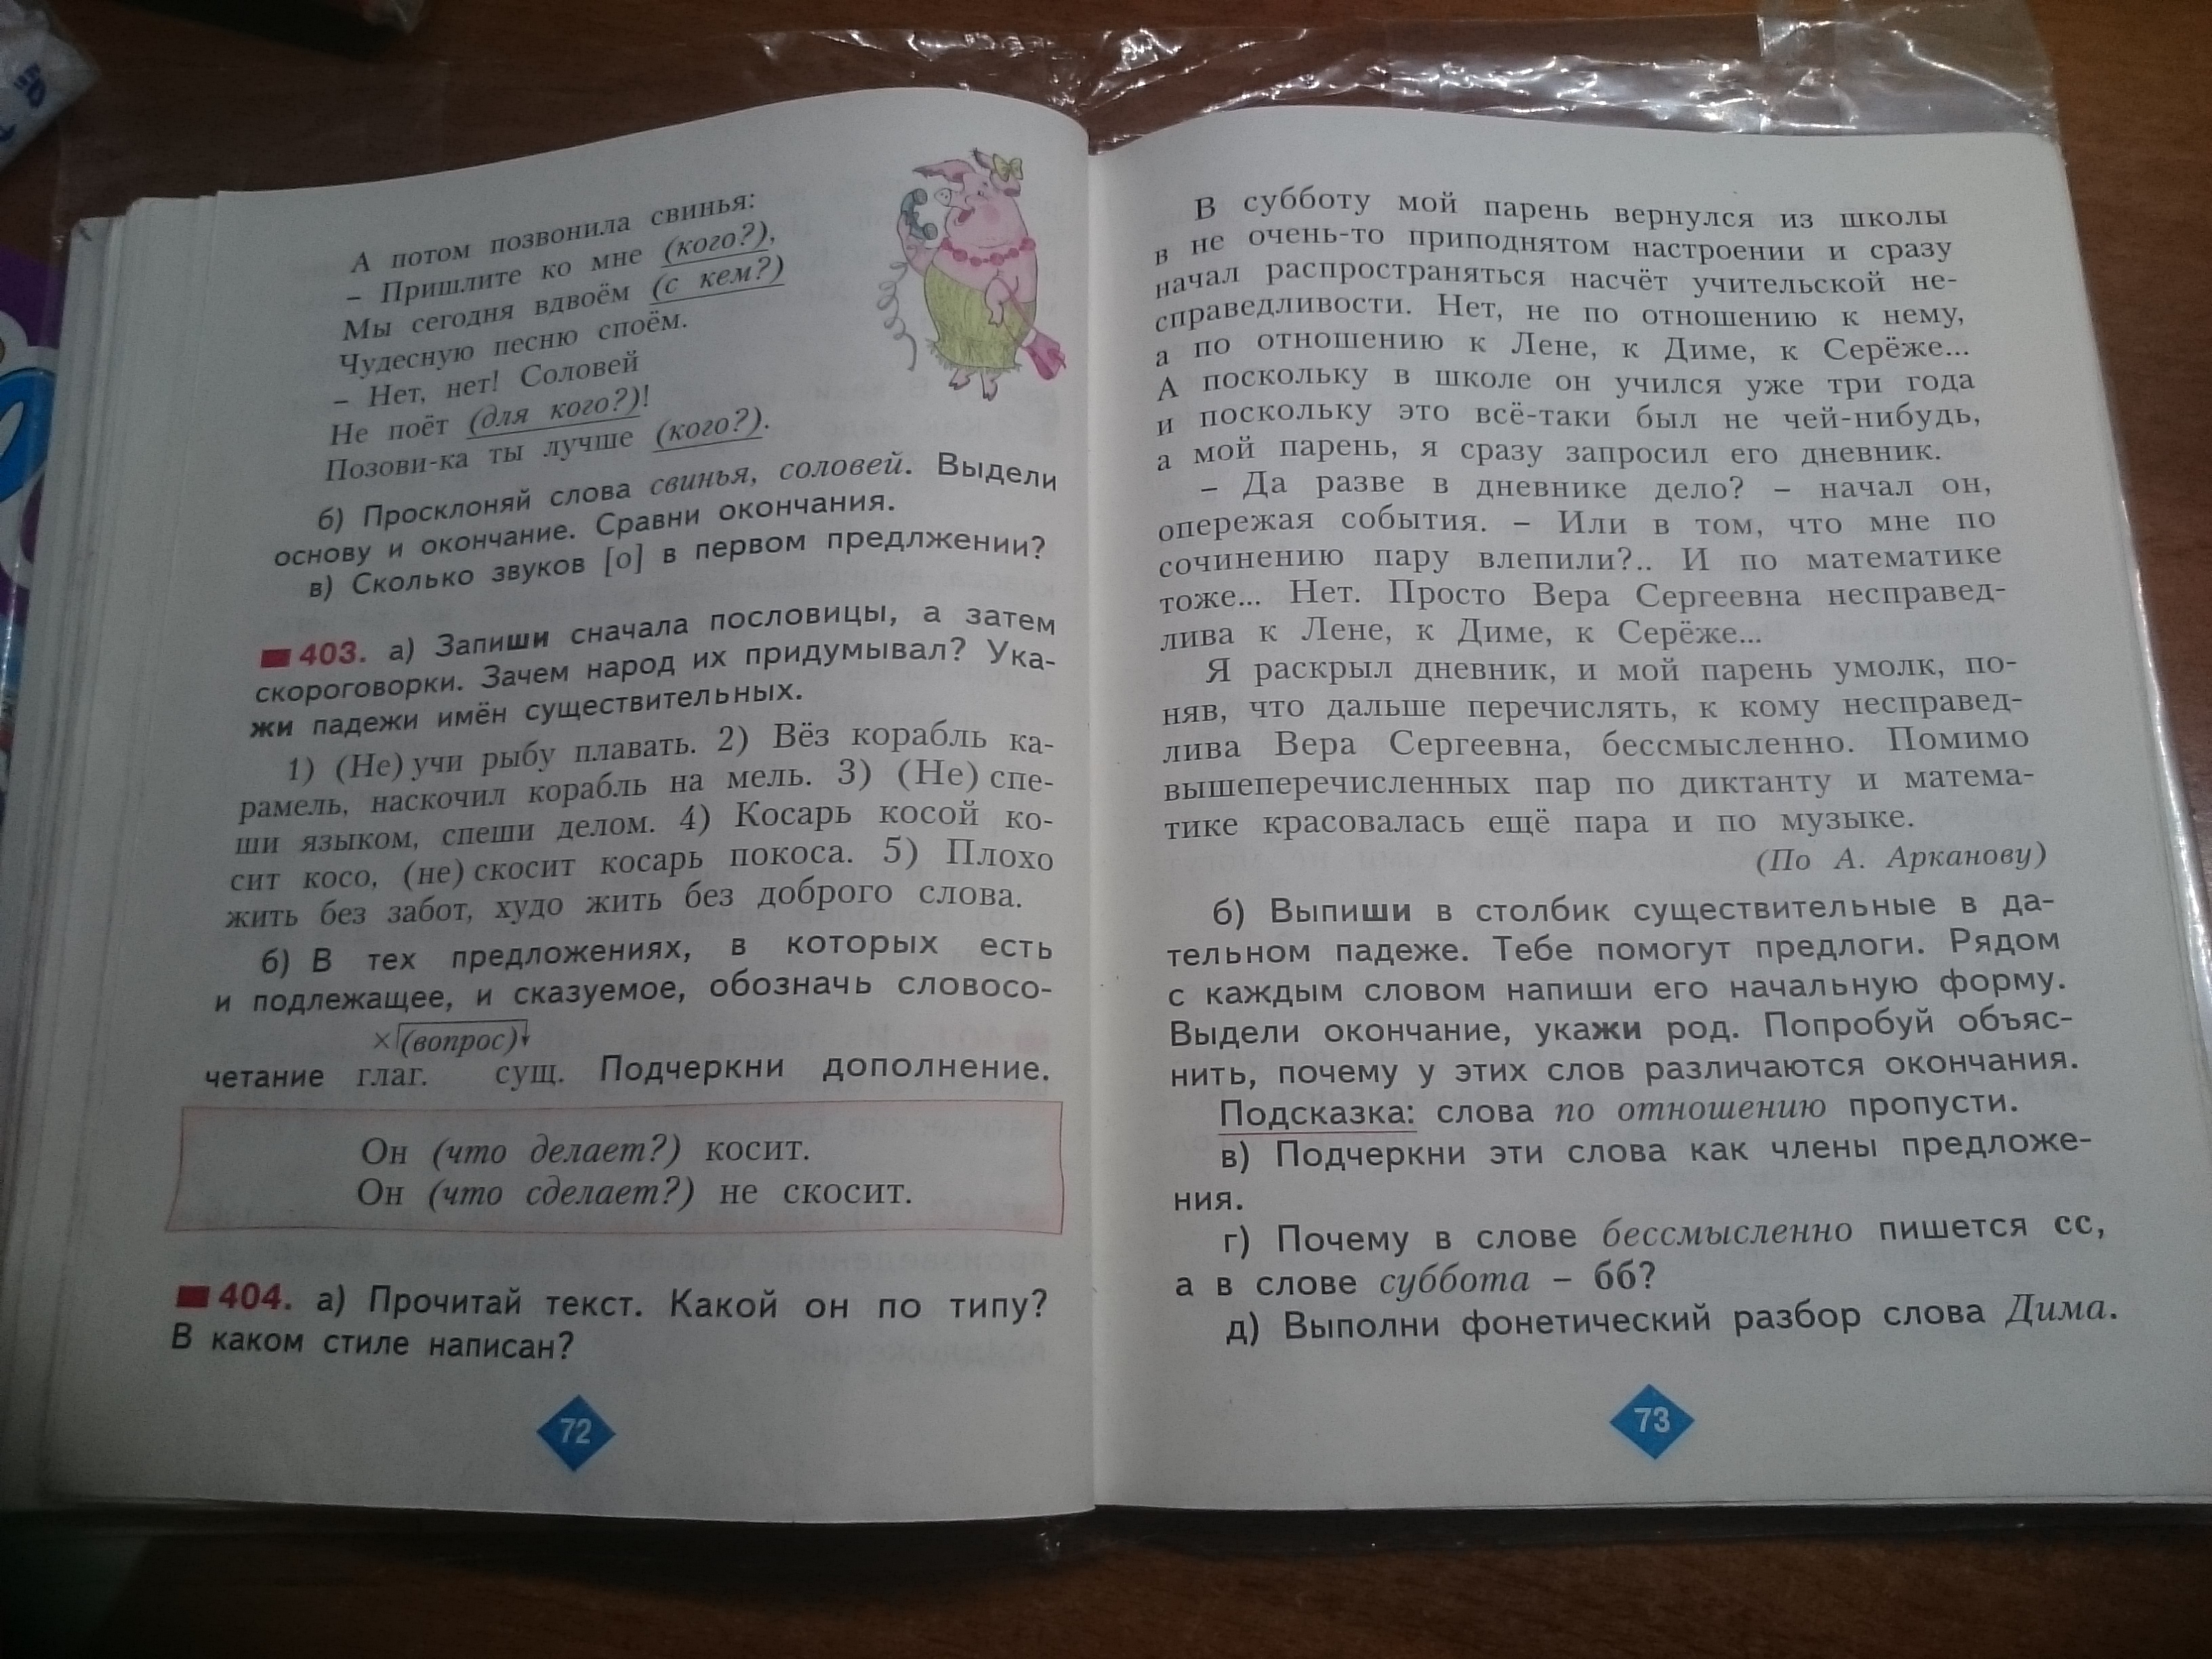 А потом позвонила свинья:
– Пришлите ко мне (кого?),
Мы сегодня вдвоём (с кем?)
Чудесную песню споём.
– Нет, нет! Соловей
Не поёт (для кого?)!
Позови-ка ты лучше (кого?).
б) Просклоняй слова свинья, соловей. Выдели
основу и окончание. Сравни окончания.
в) Сколько звуков [о] в первом предлжении?
403. а) Запиши сначала пословицы, а затем
скороговорки. Зачем народ их придумывал? Ука-
жи падежи имён существительных.
1) (Не) учи рыбу плавать. 2) Вёз корабль ка-
рамель, наскочил корабль на мель. 3) (Не) спе-
ши языком, спеши делом. 4) Косарь косой ко-
сит косо, (не) скосит косарь покоса. 5) Плохо
жить без забот, худо жить без доброго слова.
б) В тех предложениях, в которых есть
и подлежащее, и сказуемое, обозначь словосо-
×(вопрос)
четание глаг. сущ. Подчеркни дополнение.
Он (что делает?) косит.
Он (что сделает?) не скосит.
404. а) Прочитай текст. Какой он по типу?
В каком стиле написан?
72
В субботу мой парень вернулся из школы
в не очень-то приподнятом настроении и сразу
начал распространяться насчёт учительской не-
справедливости. Нет, не по отношению к нему,
а по отношению к Лене, к Диме, к Серёже...
А поскольку в школе он учился уже три года
и поскольку это всё-таки был не чей-нибудь,
а мой парень, я сразу запросил его дневник.
– Да разве в дневнике дело? – начал он,
опережая события. – Или в том, что мне по
сочинению пару влепили?.. И по математике
тоже... Нет. Просто Вера Сергеевна несправед-
лива к Лене, к Диме, к Серёже...
Я раскрыл дневник, и мой парень умолк, по-
няв, что дальше перечислять, к кому несправед-
лива Вера Сергеевна, бессмысленно. Помимо
вышеперечисленных пар по диктанту и матема-
тике красовалась ещё пара и по музыке.
(По А. Арканову)
б) Выпиши в столбик существительные в да-
тельном падеже. Тебе помогут предлоги. Рядом
с каждым словом напиши его начальную форму.
Выдели окончание, укажи род. Попробуй объяс-
нить, почему у этих слов различаются окончания.
Подсказка: слова по отношению пропусти.
в) Подчеркни эти слова как члены предложе-
ния.
г) Почему в слове бессмысленно пишется сс,
а в слове суббота – бб?
д) Выполни фонетический разбор слова Дима.
73